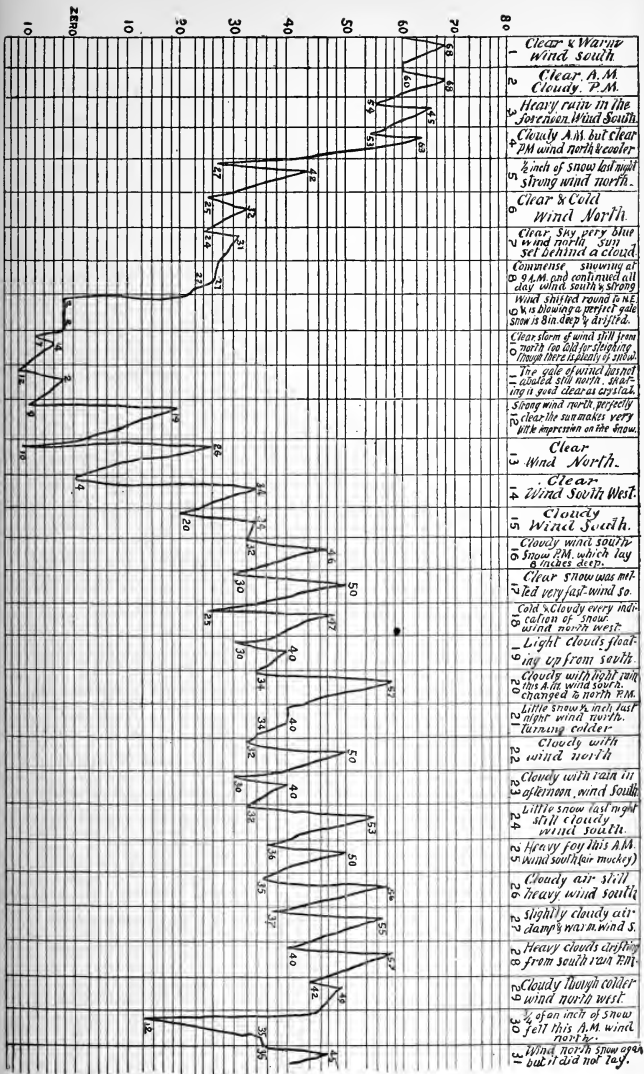 10 ZERO 10 20 30 40 50 60 70 80
1 Clear & Warm
Wind South
2 Clear, A.M.
Cloudy. P.M.
3 Heavy rain in the
forenoon. Wind South.
4 Cloudy A.M. but clear
P.M wind north & cooler
5 ½ inch of snow last night
strong wind north.
6 Clear & Cold
Wind North.
7 Clear, Sky very blue
wind north, sun
set behind a cloud
8 Commense snowing at
9 A.M. and continued all
day wind south & strong
9 Wind shifted round to N.E.
& is blowing a perfect gale
snow is 8 in. deep & drifted.
10 Clear, storm of wind still from
north too cold for sleighing
though there is plenty of snow.
11 The gale of wind has not
abated still north, skat-
ing is good clear as crystal.
12 Strong wind north, perfectly
clear the sun makes very
little impression on the snow.
13 Clear
Wind North.
14 Clear
Wind South West.
15 Cloudy
Wind South.
16 Cloudy wind south
Snow P.M. which lay
8 inches deep.
17 Clear snow was mel-
ted very fast-wind so.
18 Cold & Cloudy every indi-
cation of snow.
wind north west.
19 Light clouds float-
ing up from south.
20 Cloudy with light rain
this A.M. wind south.
changed to north P.M.
21 Little snow ½ inch last
night wind north.
turning colder
22 Cloudy with
wind north
23 Cloudy with rain in
afternoon, wind South
24 Little snow last night
still cloudy
wind south.
25 Heavy fog this A.M.
Wind south (air muckey)
26 Cloudy air still
heavy wind south
27 slightly cloudy air
damp & warm. wind S.
28 Heavy clouds drifting
from south rain P.M.
29 Cloudy though colder
wind north west.
30 of an inch of snow
fell this A.M. wind
north.
31 Wind north snow again
but it did not lay.
68
60 68
54 45
53 63
27 42
25 32
24 31
27 27
5
4
12 2
9 19
10 26
4 34
20 34
32 46
30 50
25 47
30 40
34 57
34 40
32 50
30 40
32 53
36 50
35
37 55
40 57
42 49
12 35